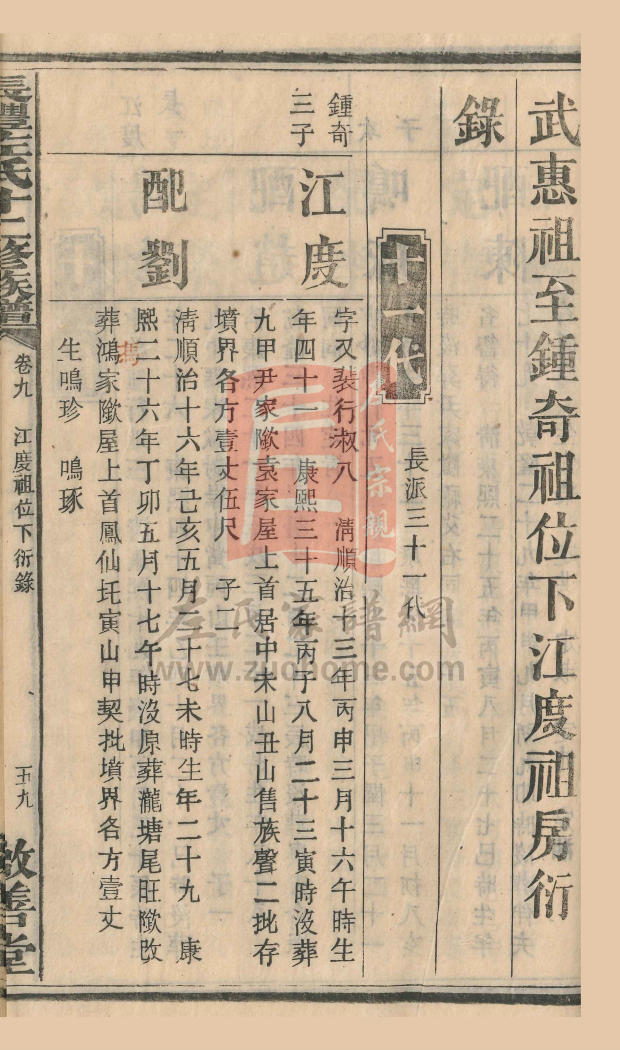 武惠祖至鍾奇祖位下江度祖房衍
錄
十一代
長派三十一代
鍾奇
三子
江度
字又裴行淑八 清順治十三年丙申三月十六午時生
年四十一 康熙三十五年丙子八月二十三寅時沒葬
九甲尹家隞袁家屋上首居中未山丑山售族聲二批存
墳界各方壹丈伍尺 子二
配劉
清順治十六年己亥五月二十七未時生年二十九 康
熙二十六年丁卯五月十七午時沒原葬瀧塘尾旺隞改
葬鴻家隞屋上首鳳仙圫寅山申契批墳界各方壹丈
生鳴珍 鳴琢
長灃左氏十二修族譜
卷九 江度祖位下衍錄
敬善堂
左氏家譜網
www.zuohome.com